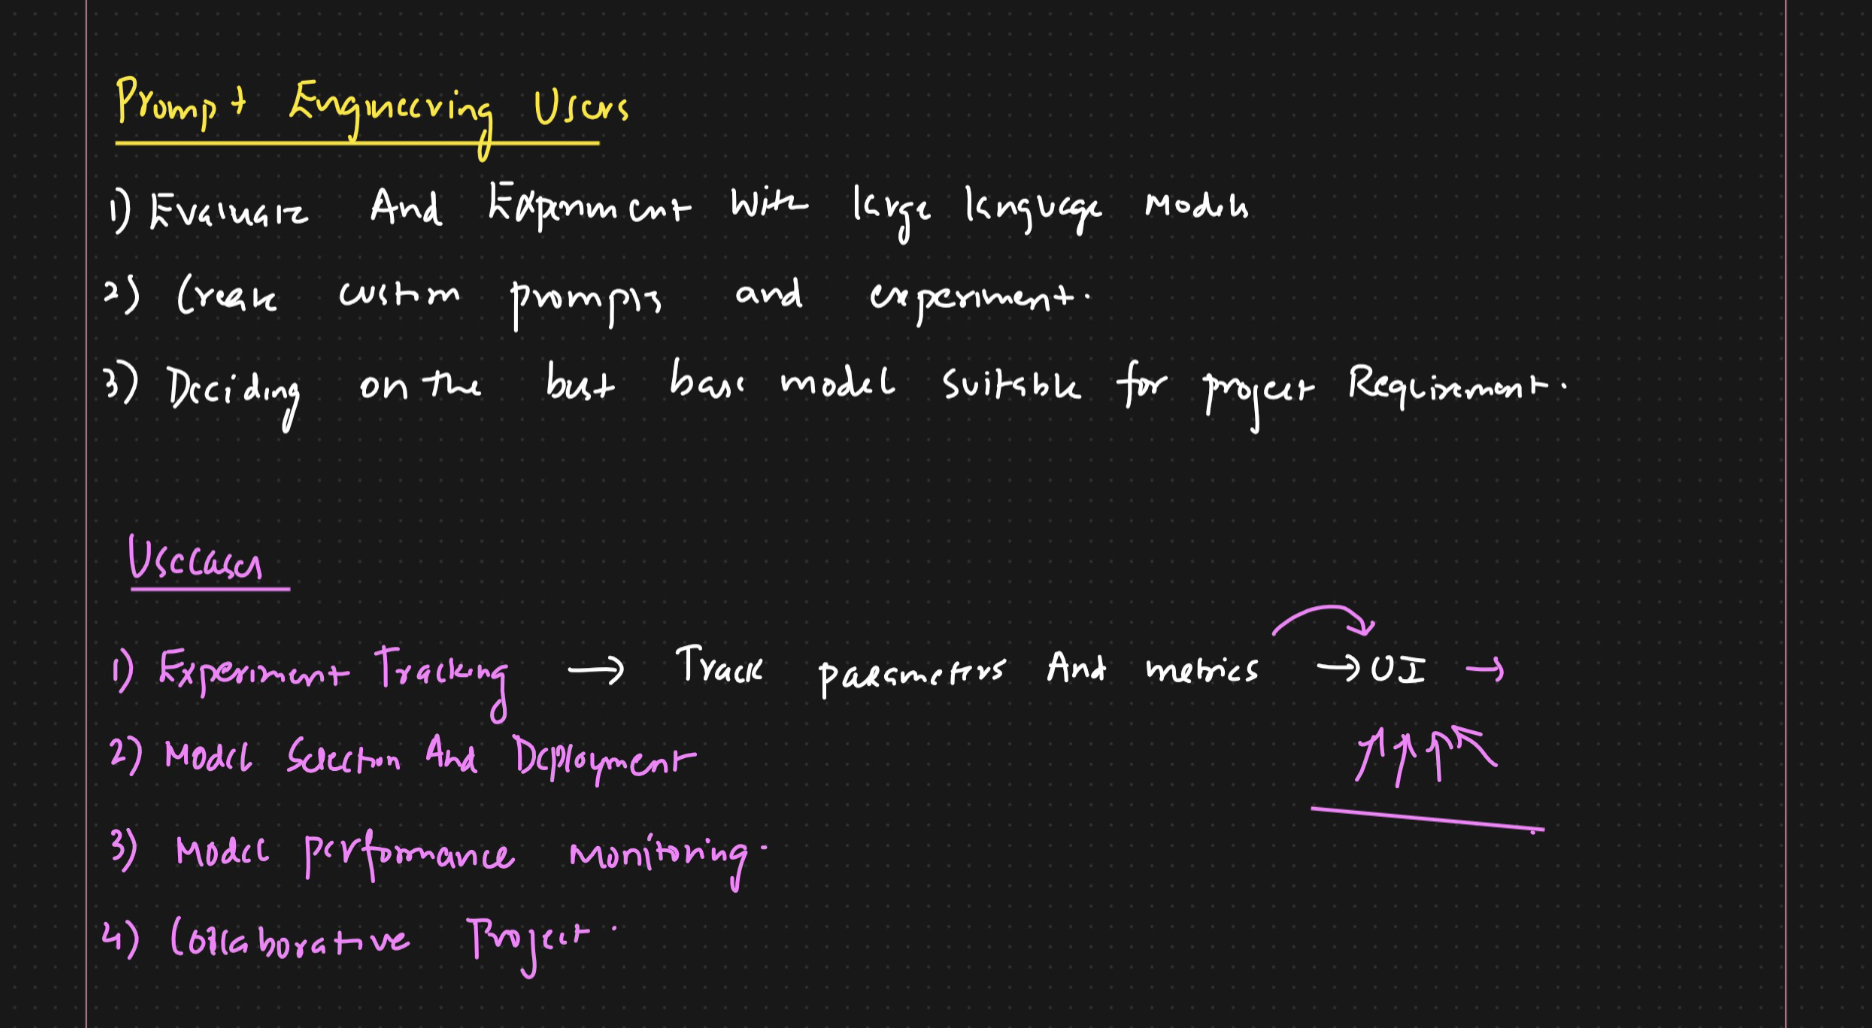 Prompt Engineering Users
1) Evaluate And Experiment With large language Models
2) Create custom prompts and experiment.
3) Deciding on the best base model suitable for project Requirement.
Usecases
1) Experiment Tracking → Track parameters And metrics → UI →
2) Model Selection And Deployment
3) Model performance Monitoring.
4) Collaborative Project.